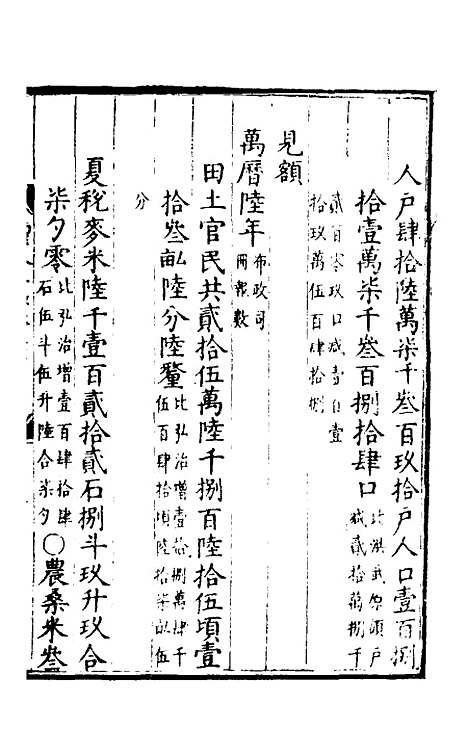 人戶肆拾陸萬柒千叁百玖拾戶人口壹百捌
拾壹萬柒千叁百捌拾肆口
比洪武原額戶
減貳拾萬捌千
貳百零玖口減壹百壹
拾玖萬伍百肆拾捌
見額
萬曆陸年
布政司
冊報數
田土官民共貳拾伍萬陸千捌百陸拾伍頃壹
拾叁畝陸分陸釐
比弘治增壹拾捌萬肆千
伍百肆拾頃陸拾柒畝伍
分
夏稅麥米陸千壹百貳拾貳石捌斗玖升玖合
柒勺零
比弘治增壹百肆拾肆
石伍斗伍升陸合柒勺
○農桑米叁